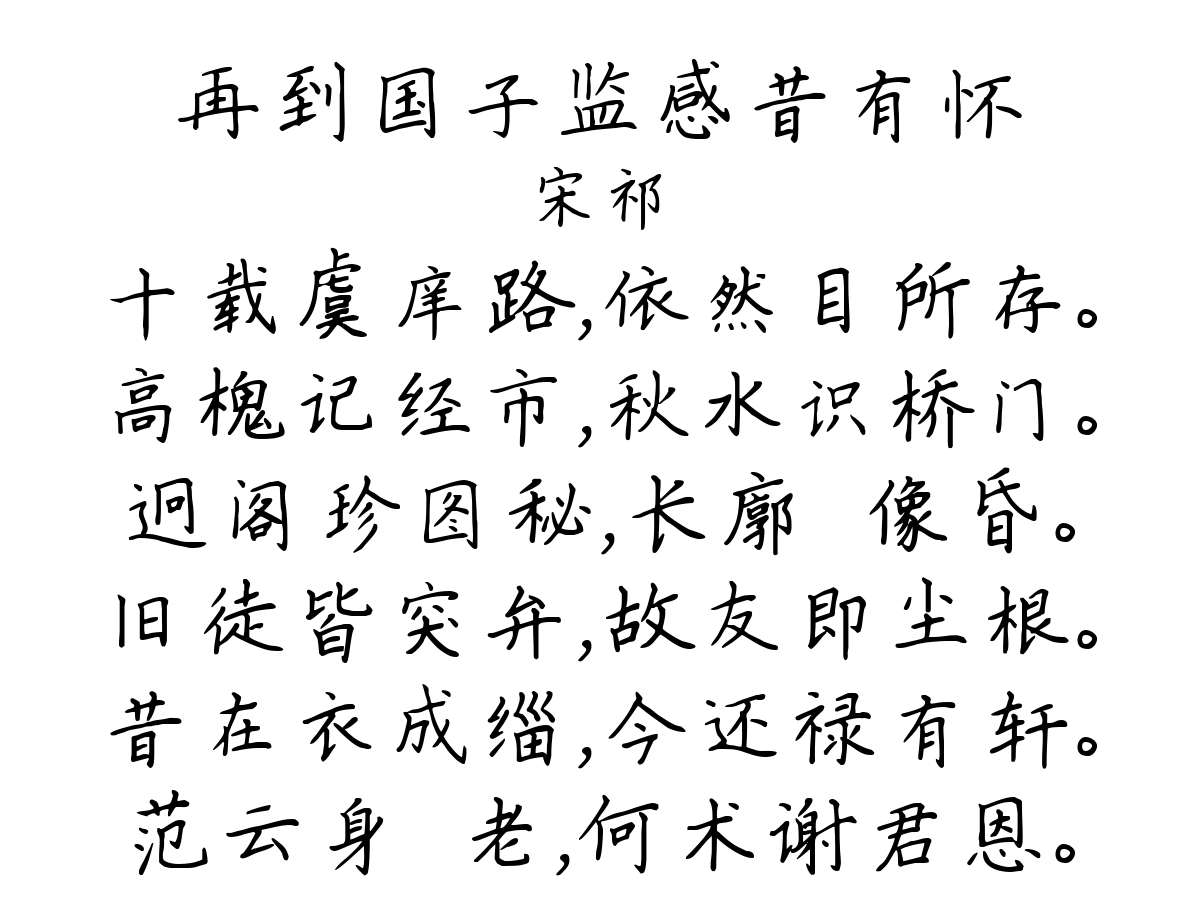 再到国子监感昔有怀
宋祁
十载虞庠路,依然目所存。
高槐记经市,秋水识桥门。
迥阁珍图秘,长廓 像昏。
旧徒皆突弁,故友即尘根。
昔在衣成缁,今还禄有轩。
范云身 老,何术谢君恩。